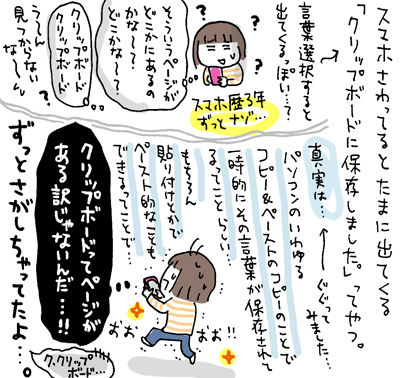 スマホさわってるとたまに出てくる
「クリップボードに保存しました。」ってやつ。
言葉選択すると
出てくるっぽい…?
?
?
?
?
スマホ歴3年
ずっとナゾ…
そういうページが
どこかにあるの
かな〜?
どこかな〜?
?
クリップボード
クリップボード
う〜ん
見つからない
な〜ん
真実は…
ぐぐって
みました…
パソコンのいわゆる
コピー&ペーストのコピーのことで
一時的にその言葉が保存されて
るってことらしい
もちろん
貼り付けとかで
ペースト的なことも
できるってことで
クリップボードってページが
ある訳じゃないんだ…!!
おぉ
おぉ
おぉ!!
ク、クリップ
ボード…
ずっとさがしちゃってたよ…。